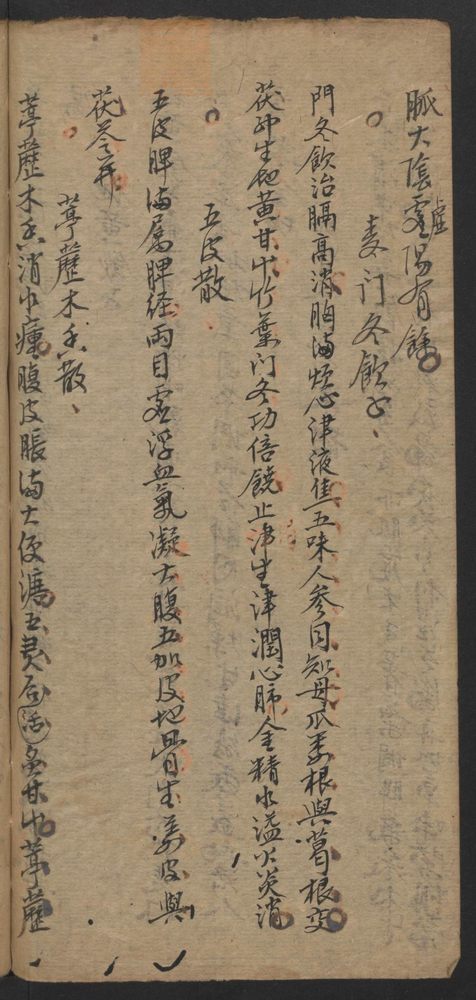 脈大陰虛陽有餘
麦门冬飲子
門冬飲治膈高消胸満煩心津液焦五味人參同知母瓜蔞根與葛根交
茯神生地黄甘屮竹葉门冬功倍饒止渴生津潤心肺金精水溢火炎消
五皮散
五皮脾満属脾経両目虚浮血氣凝大腹五加皮地骨生姜皮與
茯苓并
葶藶木香散
葶藶木香消水瘴腹皮脹満大便溏五苓石活甘屮葶藶